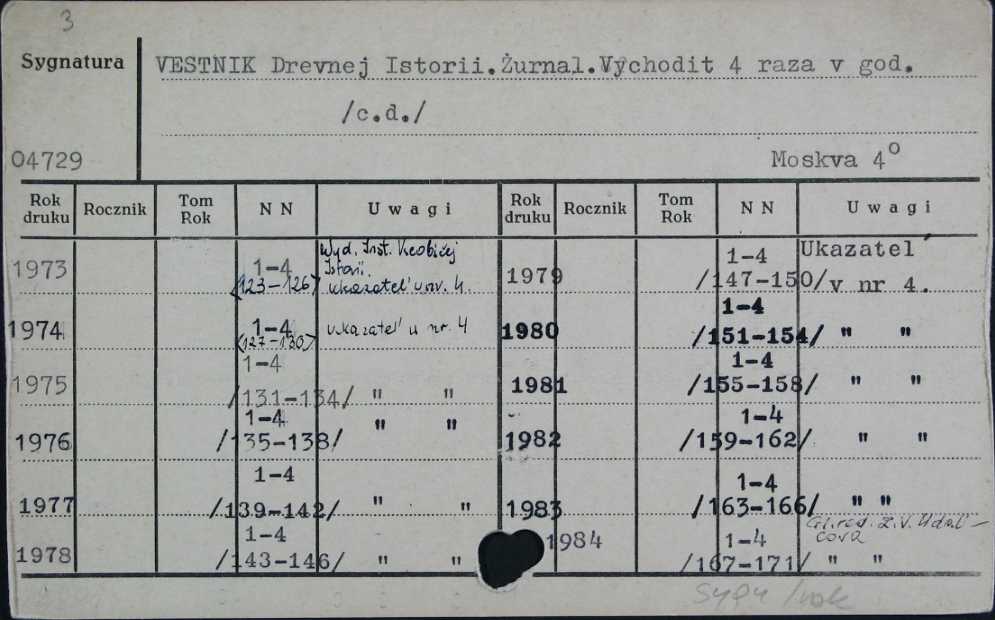 3
Sygnatura
VESTNIK Drevnej Istorii.Żurnal.Vychodit 4 raza v god.
/c.d./
04729
Moskva 4°
Rok druku Rocznik Tom Rok N N Uwagi Rok druku Rocznik Tom Rok N N Uwagi
1973 1-4 (123-126) Wyd. Inst. Istorii. ukazatel' u nr. 4.
1974 1-4 (127-130) ukazatel' u nr. 4
1975 1-4 /131-134/ " "
1976 1-4 /135-138/ " "
1977 1-4 /139-142/ " "
1978 1-4 /143-146/ " "
1979 1-4 /147-150/ Ukazatel' v nr 4.
1980 1-4 /151-154/ " "
1981 1-4 /155-158/ " "
1982 1-4 /159-162/ " "
1983 1-4 /163-166/ " "
Gl. red. Z.V. Udal'-
cova
1984 1-4 /167-171/ " "